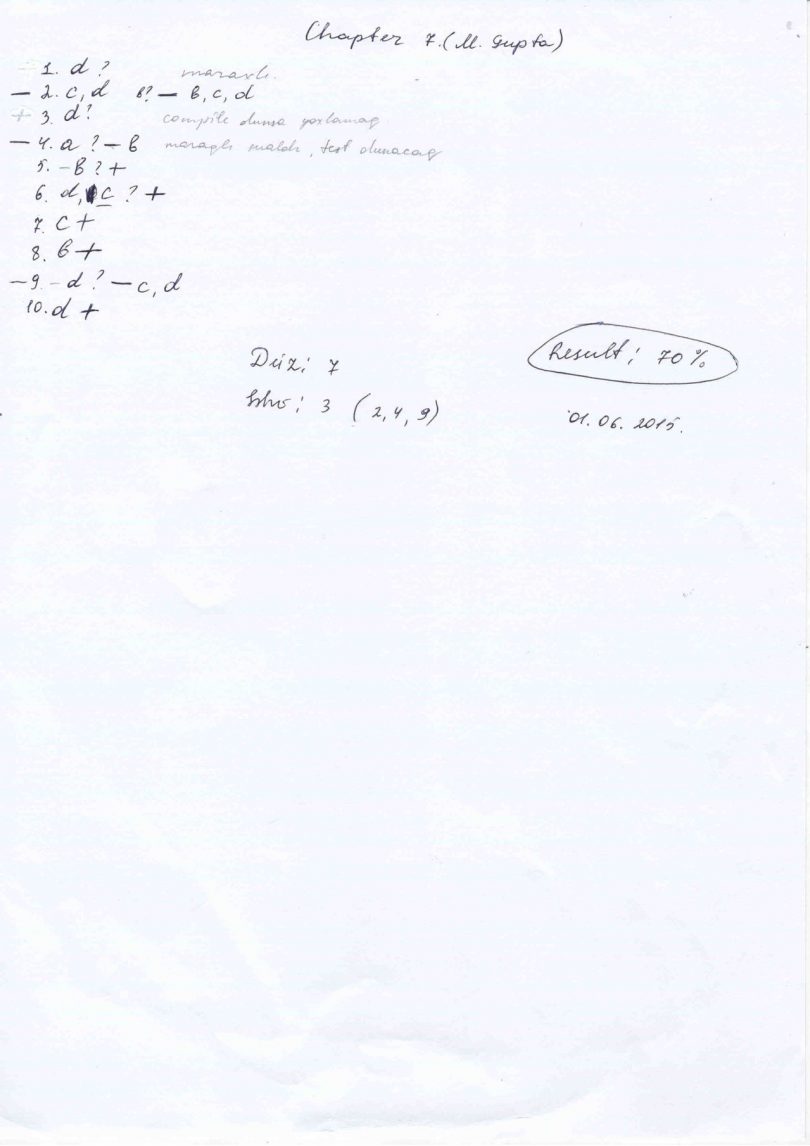 Chapter 7. (M. Gupta)
+ 1. d ? maraqlı.
– 2. c, d b? – b, c, d
+ 3. d? compile olunsa yoxlamaq
– 4. a ? – b maraqlı sualdı, test olunacaq
5. – b ? +
6. d, c ? +
7. c +
8. b +
– 9. – d ? – c, d
10. d +
Düz: 7
Result: 70%
3 (2, 4, 9)
01. 06. 2015.